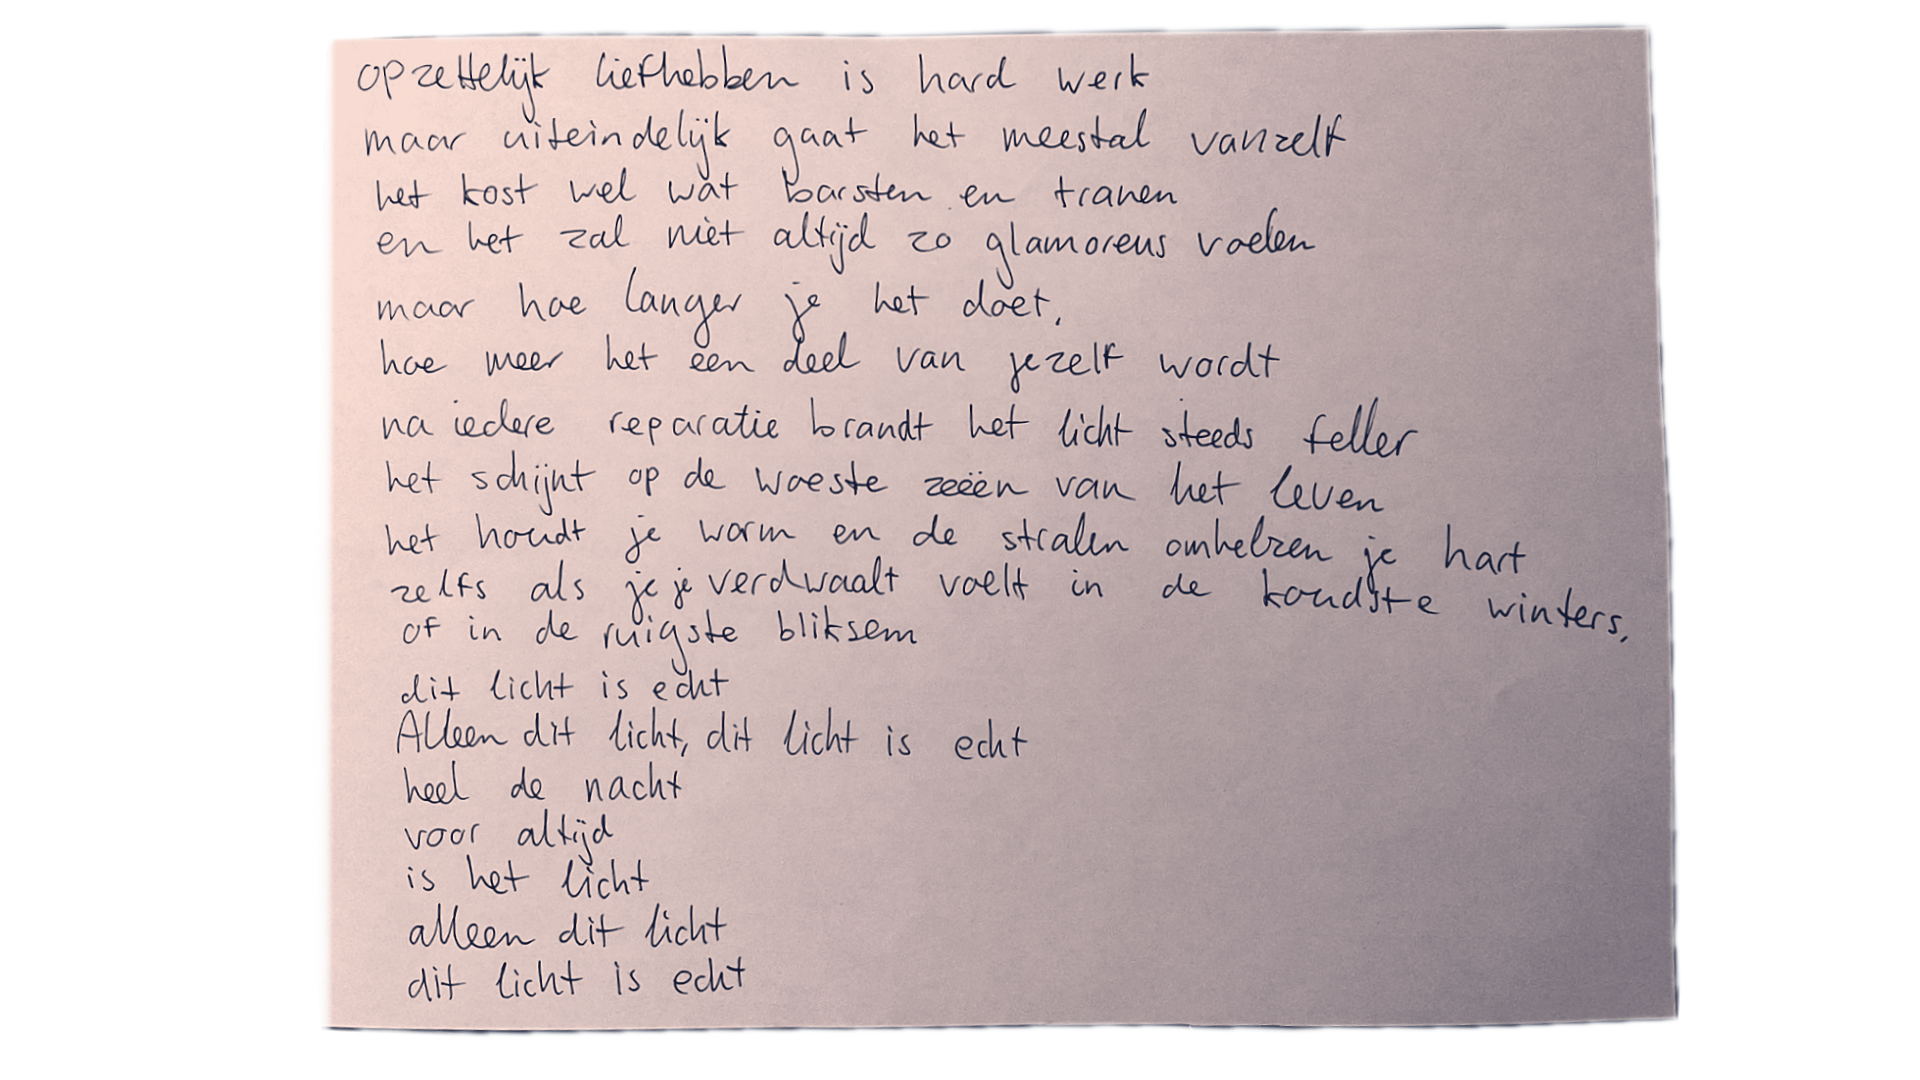 opzettelijk liefhebben is hard werk
maar uiteindelijk gaat het meestal vanzelf
het kost wel wat barsten en tranen
en het zal niet altijd zo glamoreus voelen
maar hoe langer je het doet,
hoe meer het een deel van jezelf wordt
na iedere reparatie brandt het licht steeds feller
het schijnt op de woeste zeeën van het leven
het houdt je warm en de stralen omhelzen je hart
zelfs als je je verdwaalt voelt in de koudste winters,
of in de ruigste bliksem
dit licht is echt
Alleen dit licht, dit licht is echt
heel de nacht
voor altijd
is het licht
alleen dit licht
dit licht is echt